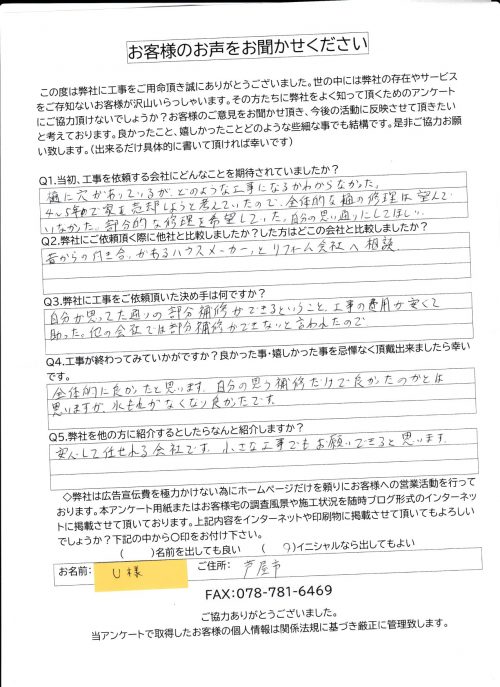 お客様のお声をお聞かせください
この度は弊社に工事をご用命頂き誠にありがとうございました。世の中には弊社の存在やサービス
をご存知ないお客様が沢山いらっしゃいます。その方たちに弊社をよく知って頂くためのアンケート
にご協力頂けないでしょうか？お客様のご意見をお聞かせ頂き、今後の活動に反映させて頂きたい
と考えております。良かったこと、嬉しかったことどのような些細な事でも結構です。是非ご協力お願
い致します。（出来るだけ具体的に書いて頂ければ幸いです）
Q1.当初、工事を依頼する会社にどんなことを期待されていましたか？
樋に穴があいているが、どのような工事になるかわからなかった。
4〜5年めで家を売却しようと考えていたので、全体的な樋の修理は望んで
いなかった。部分的な修理を希望していた。自分の思い通りにしてほしい。
Q2.弊社にご依頼頂く際に他社と比較しましたか？した方はどこの会社と比較しましたか？
昔からの付き合いがあるハウスメーカーとリフォーム会社へ相談
Q3.弊社に工事をご依頼頂いた決め手は何ですか？
自分が思ってた通りの部分補修ができるということ、工事の費用が安くて
助った。他の会社では部分補修ができないと言われたので
Q4.工事が終わってみていかがですか？良かった事・嬉しかった事を忌憚なく頂戴出来ましたら幸い
です。
全体的に良かったと思います。自分の思う補修だけで良かったのかとは
思いますが、水もれがなくなり良かったです。
Q5.弊社を他の方に紹介するとしたらなんと紹介しますか？
安心して任せれる会社です。小さな工事でもお願いできると思います。
◇弊社は広告宣伝費を極力かけない為にホームページだけを頼りにお客様への営業活動を行って
おります。本アンケート用紙またはお客様宅の調査風景や施工状況を随時ブログ形式のインターネッ
トに掲載させて頂いております。上記内容をインターネットや印刷物に掲載させて頂いてもよろしい
でしょうか？下記の中から〇印をお付け下さい。
（　　）名前を出しても良い　（　○）イニシャルなら出してもよい
お名前：　U様　ご住所：　芦屋市
FAX：078-781-6469
ご協力ありがとうございました。
当アンケートで取得したお客様の個人情報は関係法規に基づき厳正に管理致します。